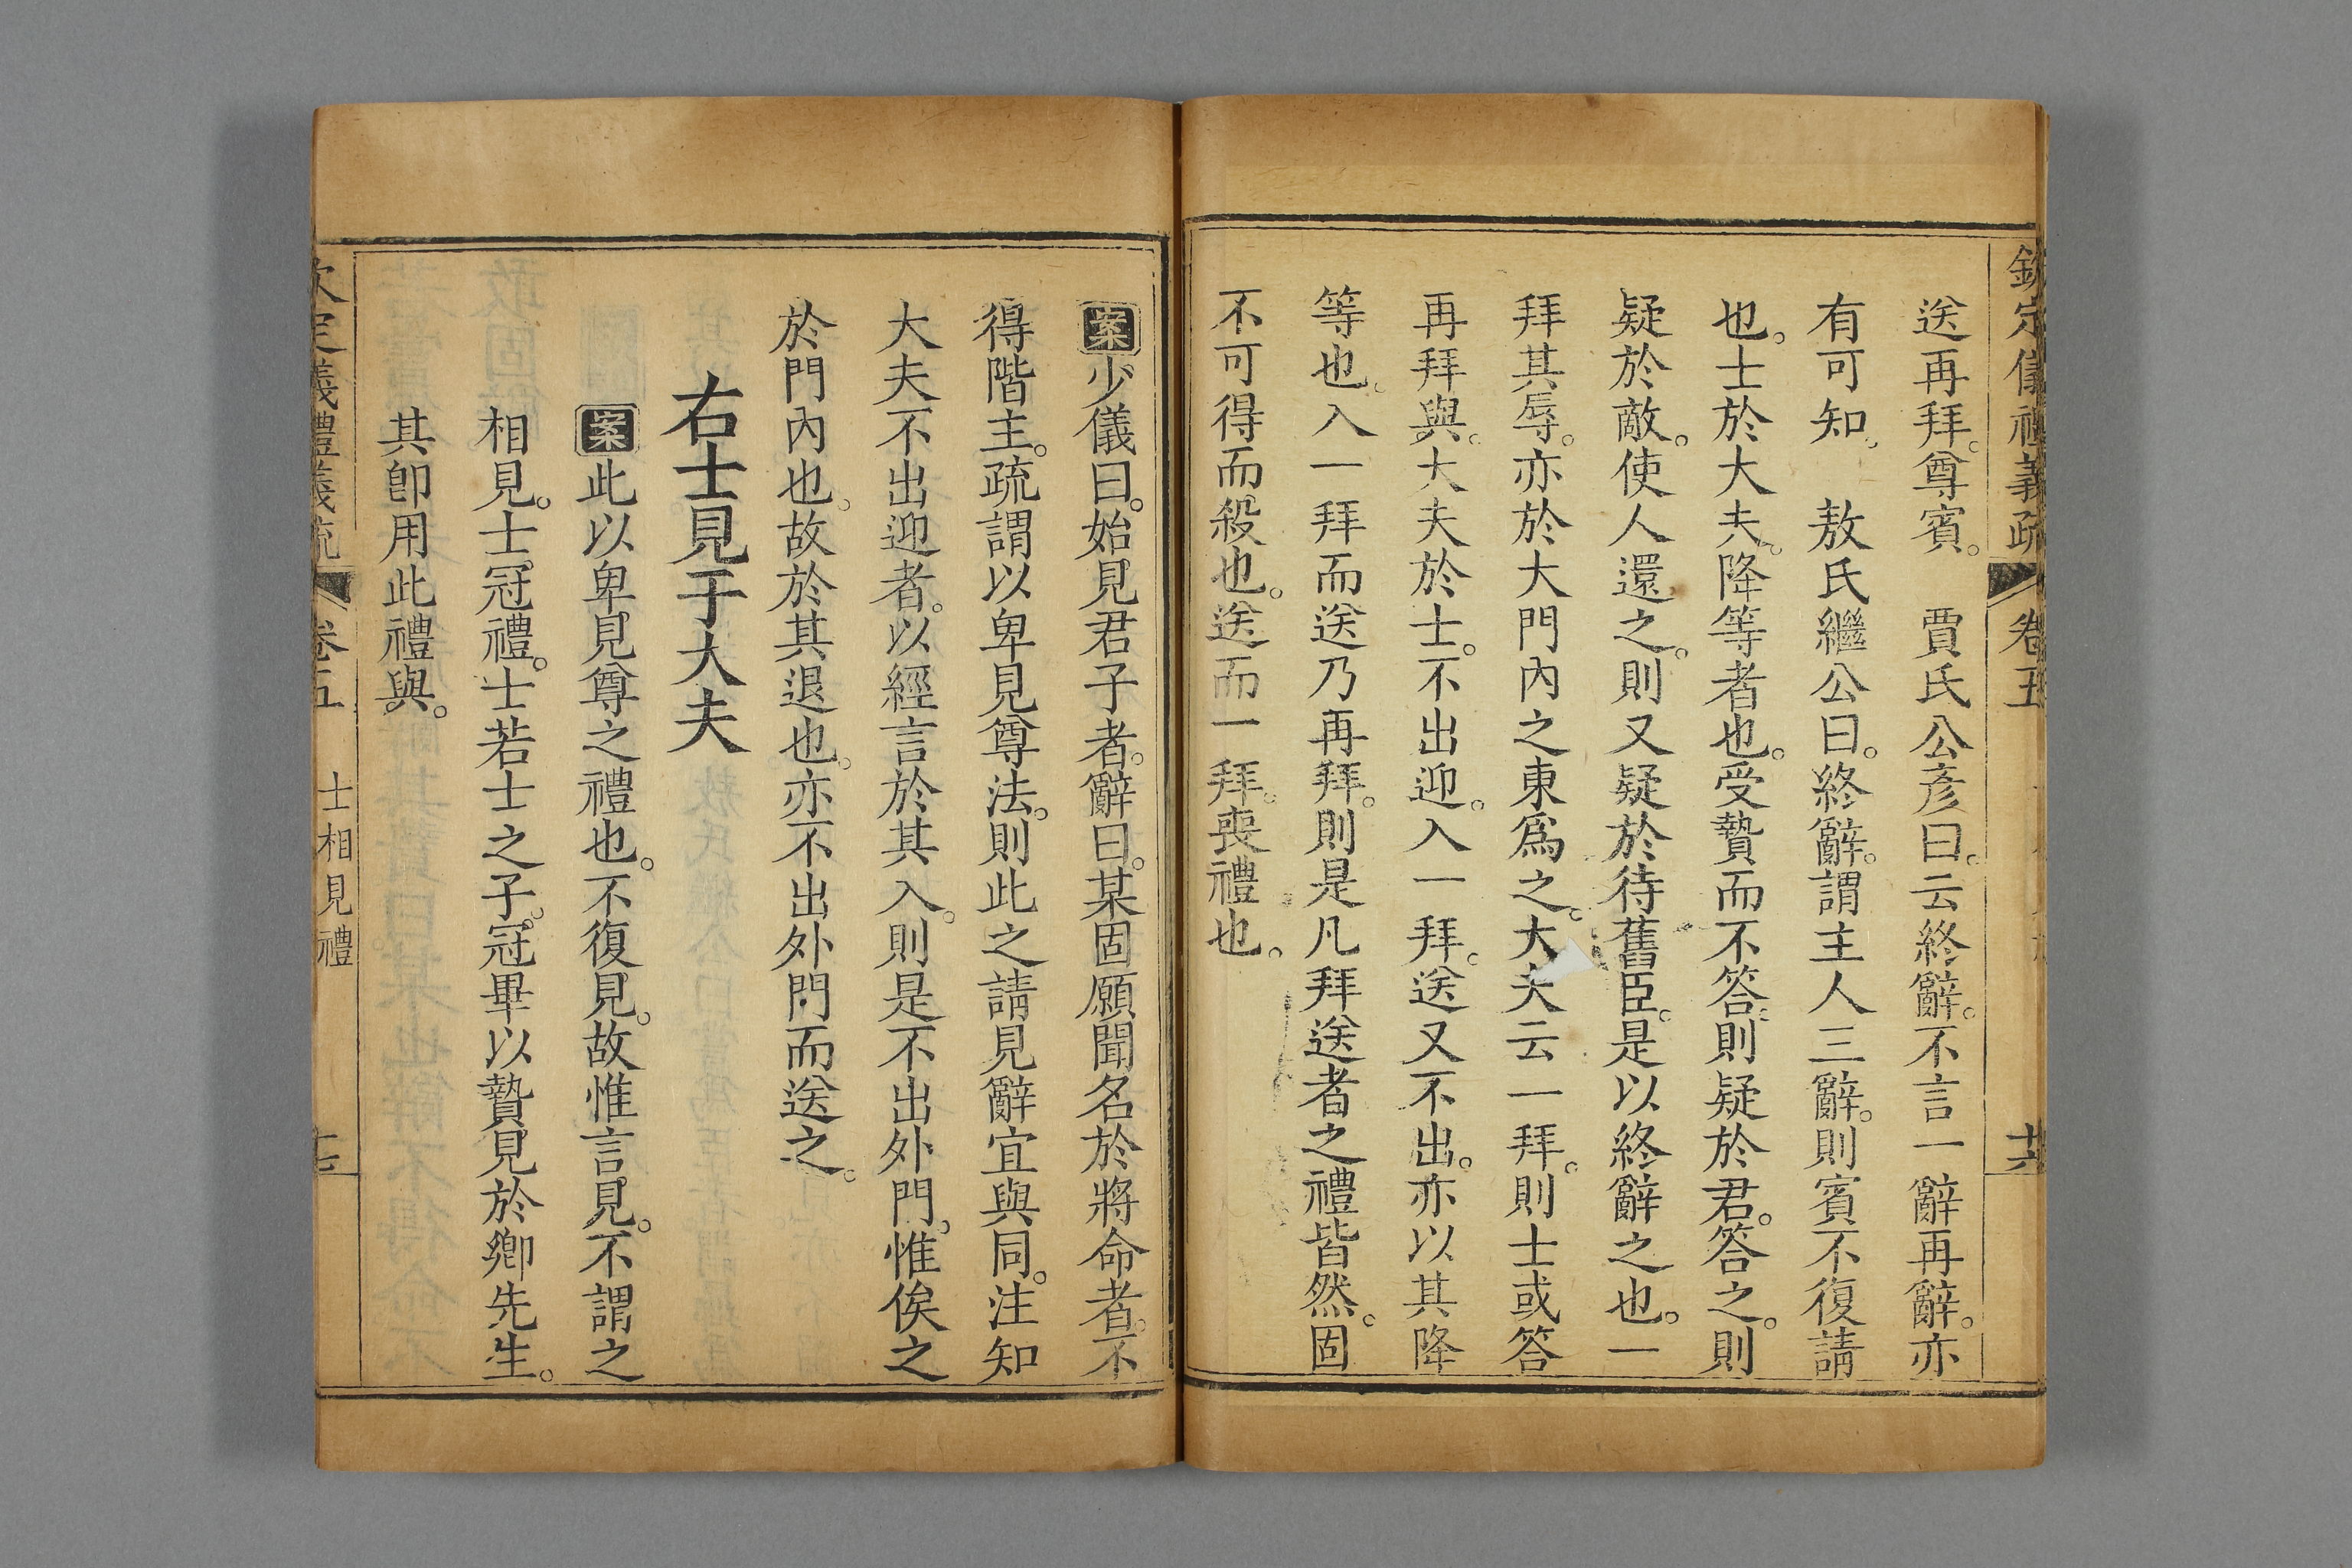 欽定儀禮義疏 卷五 十六
送再拜。尊賓。 賈氏公彥曰。云終辭。不言一辭再辭。亦
有可知。 敖氏繼公曰。終辭。謂主人三辭。則賓不復請
也。士於大夫。降等者也。受贄而不答。則疑於君。答之。則
疑於敵。使人還之。則又疑於待舊臣。是以終辭之也。一
拜其辱。亦於大門內之東爲之。大夫云一拜。則士或答
再拜與。大夫於士。不出迎。入一拜。送又不出。亦以其降
等也。入一拜而送乃再拜。則是凡拜送者之禮皆然。固
不可得而殺也。送而一拜。喪禮也。
案少儀曰。始見君子者。辭曰。某固願聞名於將命者。不
得階主。疏謂以卑見尊法。則此之請見辭宜與同。注知
大夫不出迎者。以經言於其入。則是不出外門。惟俟之
於門內也。故於其退也。亦不出外門而送之。
右士見于大夫
案此以卑見尊之禮也。不復見。故惟言見。不謂之
相見。士冠禮。士若士之子。冠畢以贄見於鄉先生。
其卽用此禮與。
欽定義禮義疏 卷五 士相見禮 十七